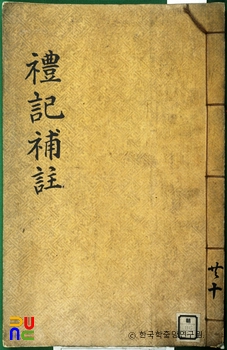 禮記補註
共十
ⓒ한국학중앙연구원